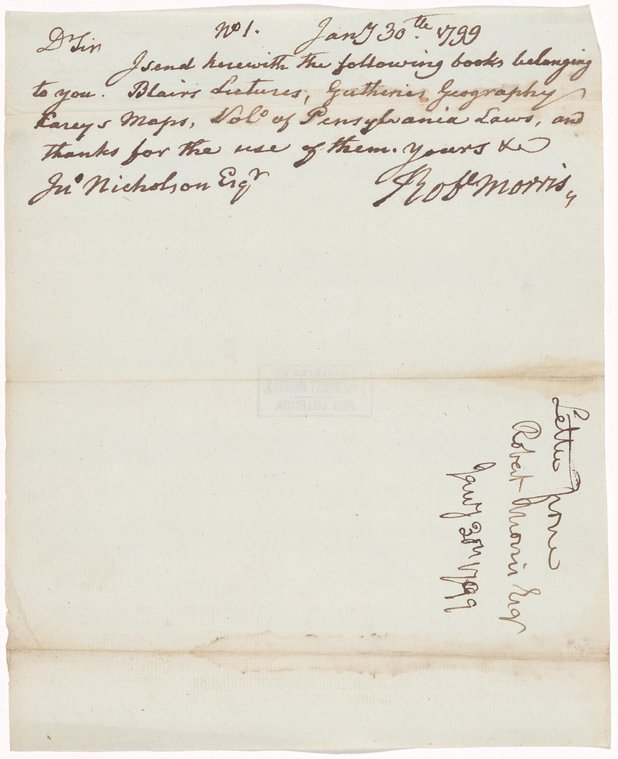 No 1. Jany 30th 1799
Dr Sir
I send herewith the following books belonging
to you. Blairs Lectures, Gutheries Geography
Careys Maps, Vol. of Pensylvania Laws, and
thanks for the use of them. Yours &c
Jno Nicholson Esqr Robt Morris
Letter from
Robert Morris Esqr
Jany 30th 1799